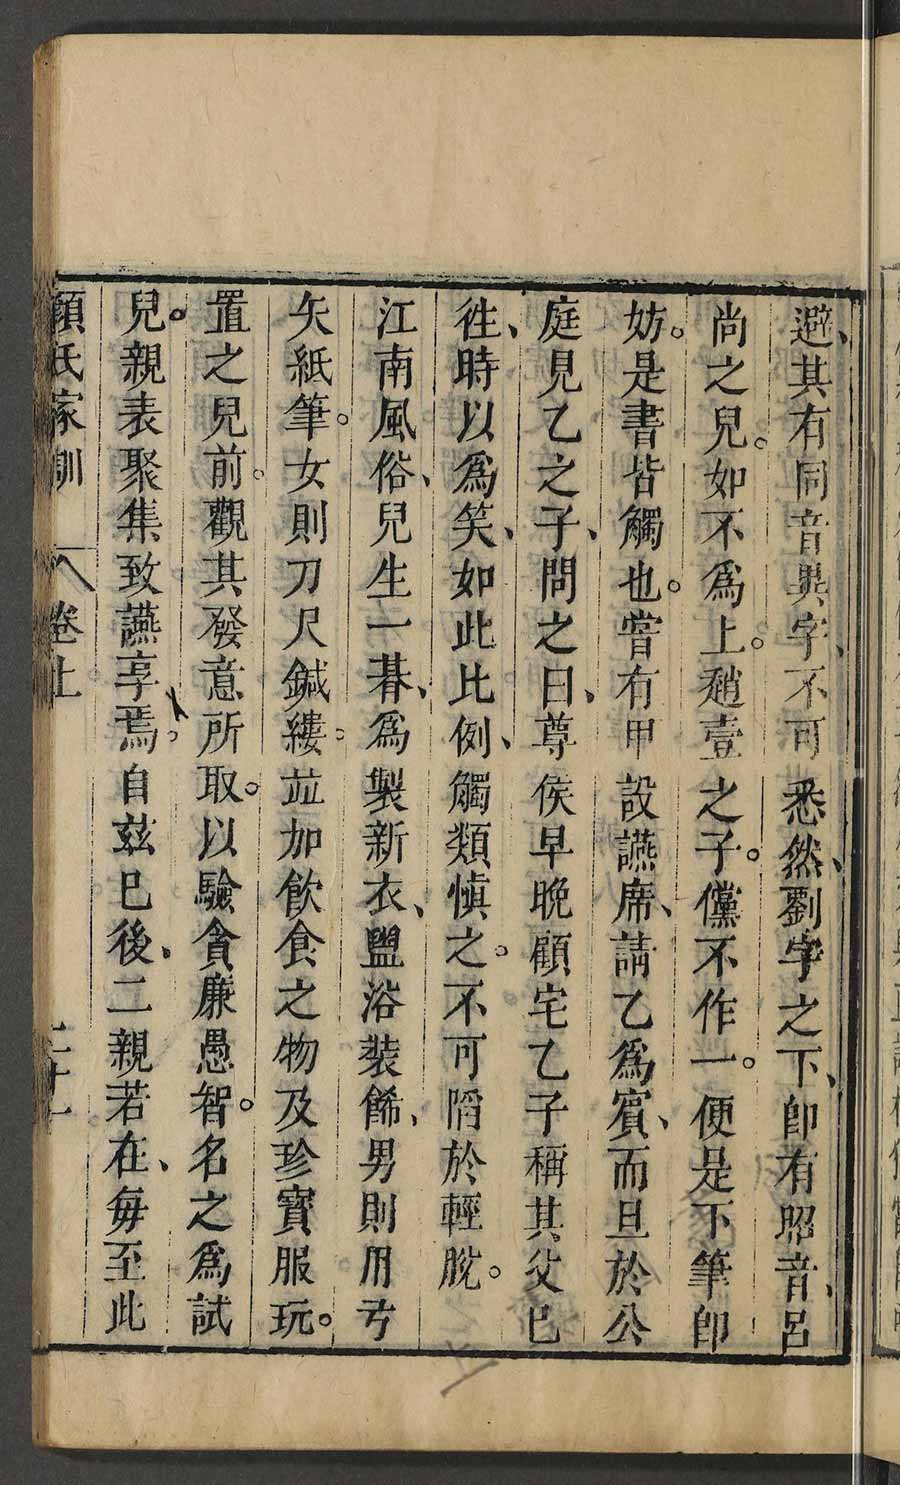 避、其有同音異字、不可悉然、劉字之下、即有昭音、呂
尚之兒。如不為上。趙壹之子。儻不作一。便是下筆即
妨。是書皆觸也。嘗有甲設讌席、請乙為賓、而旦於公
庭見乙之子、問之曰、尊侯早晚顧宅乙子稱其父已
徃、時以為笑、如此比例、觸類慎之。不可陷於輕脫。
江南風俗、兒生一朞、為製新衣、盥浴裝餙、男則用弓
矢紙筆。女則刀尺鍼縷。並加飲食之物及珍寶服玩。
置之兒前。觀其發意所取。以驗貪廉愚智。名之為試
兒。親表聚集致讌享焉。自茲已後、二親若在、每至此
顏氏家訓 卷上 二十一